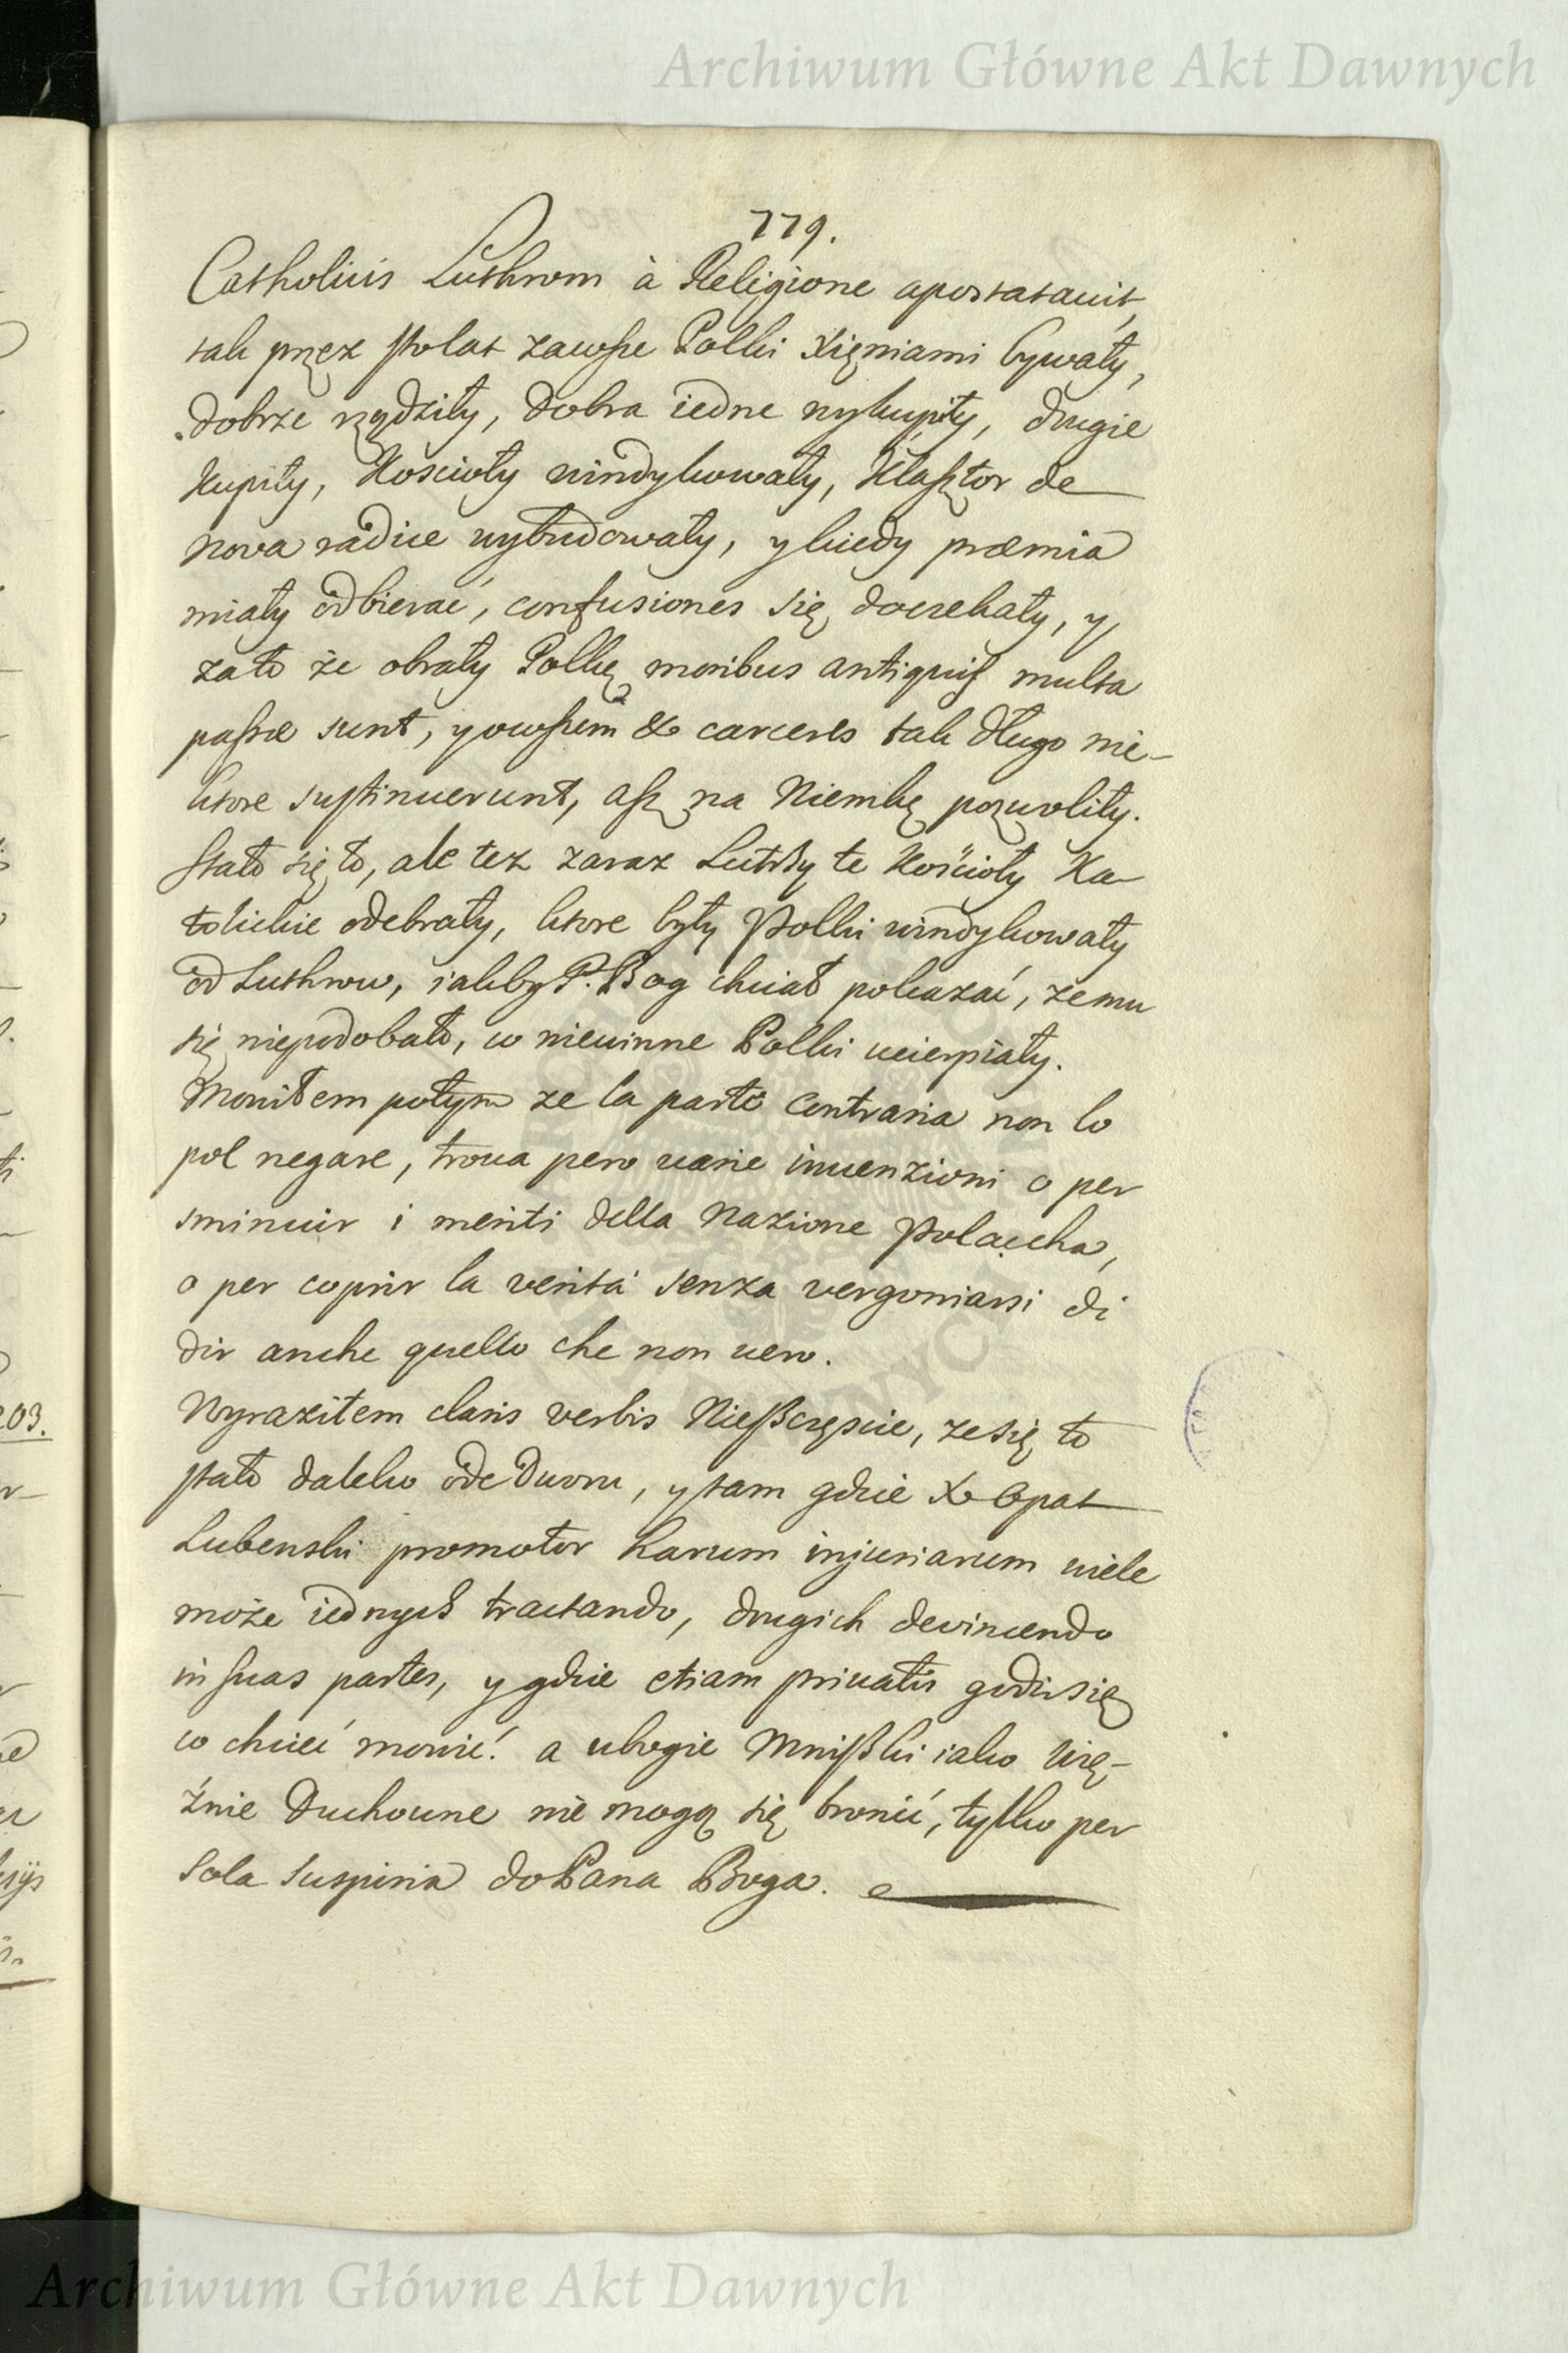 Archiwum Główne Akt Dawnych
779.
Catholicis Luthrom à Religione apostatauit,
tak przez sto lat zawsze Polki Xięniami bywały,
dobrze rządziły, dobra iedne wykupiły, drugie
kupiły, Kościoły windykowały, Klasztor de
nova radice wybudowały, y kiedy præmia
miały odbierać, confusiones się doczekały, y
zato że obrały Polkę moribus antiquis multa
passæ sunt, y owszem & carceres tak długo nie-
ktore sustinuerunt, asz na Niemkę pozwoliły.
Stało się to, ale tez zaraz Lutrzy te Kościoły Ka-
tolickie odebrały, ktore były Polki windykowały
od Luthrow, iakby P. Bog chciał pokazać, ze mu
się niepodobało, co niewinne Polki ucierpiały.
Moniłem potym ze la parte contraria non lo
pol negare, troua pero uarie inuenzioni o per
sminuir i meriti della Nazione Polaccha,
o per coprir la verità senza vergoniarsi di
dir anche quello che non uero.
Wyraziłem claris verbis Nieszczęscie, ze się to
stało daleko ode Dworu, y tam gdzie X Opat
Lubenski promotor harum injuriarum wiele
może iednych tractando, drugich devincendo
in suas partes, y gdzie etiam privatis godzi się
co chcieć mowić! a ubogie Mniszki iako Wię-
źnie Duchowne nie mogą się bronić, tylko per
sola suspiria do Pana Boga.
203.
Archiwum Główne Akt Dawnych